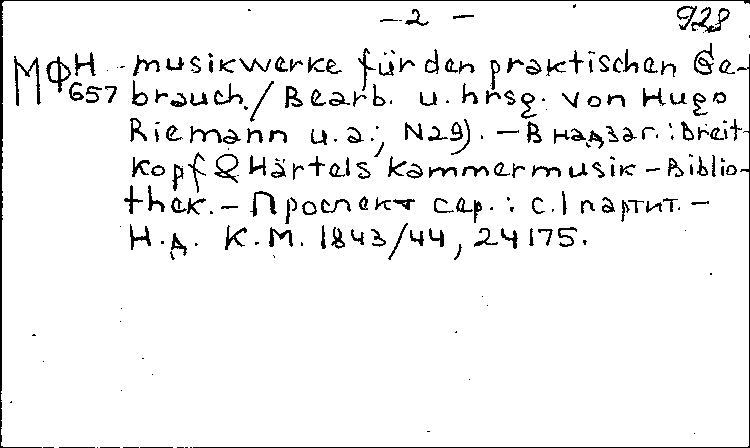 – 2 –
928
МФ Н 657
musikwerke für den praktischen Ge-
brauch. / Bearb. u. hrsg. von Hugo
Riemann u.a.; N29). – В надзаг.: Breit-
kopf & Härtels Kammermusik – Biblio-
thek. – Проспект сер.: с. 1 партит. –
Н.д. К.М. 1843/44, 24175.